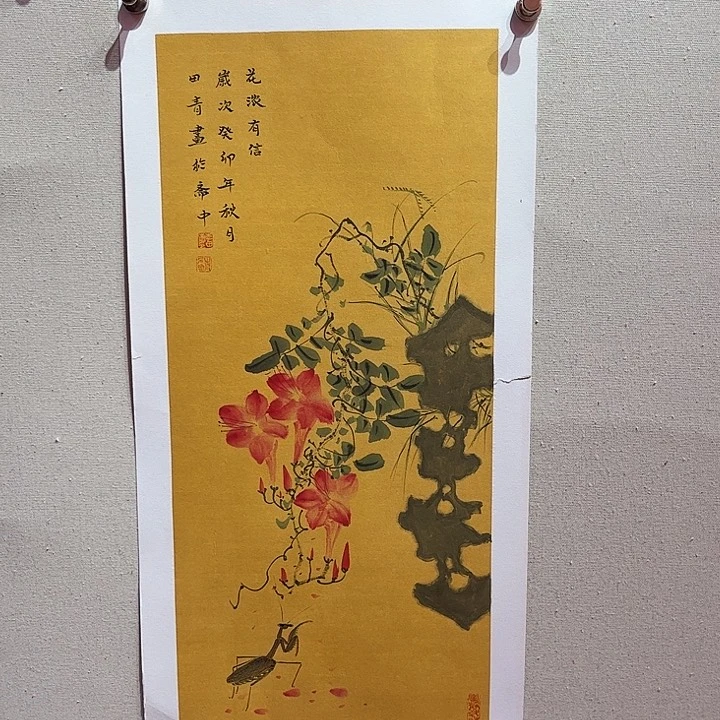 花浓有信
歲次癸卯年秋月
田青畫於齋中